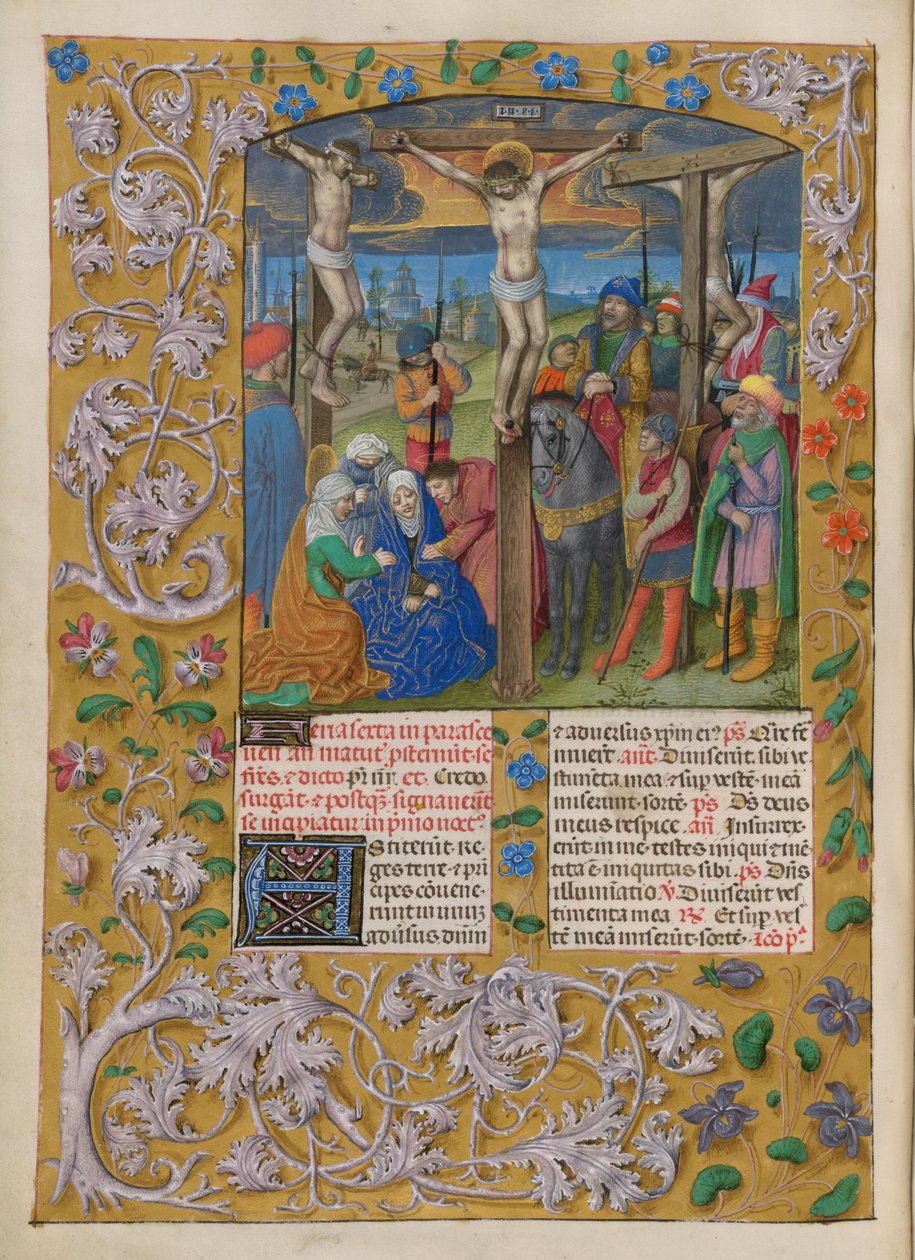 I·N·R·I·
Feria sexta in parasce
uen ad matut᷒ p̱sternūt se
frēs ⁊ dicto pr̄ nr̄ et Credo
surgāt ⁊ postqᷓ signauerūt
se incipiatur in pͥmo noctͦ
Astiterūt re
ges terre ⁊ pͥn
cipes cōuene
runt in unūꝫ
aduersus dnm
⁊ aduersus xp̄m eiꝰ p̄s Qͣre fre
muerūt añt Diuiserūt sibi ve
stimēta mea ⁊ sup̱ vestē meā
miserunt sortē p̄s Ds deus
meus respice añ Insurrex
erūt in me testes iniqui ⁊ mē
tita ē iniquitas sibi p̄s Dn̄s
illuminatio v̄ Diuiserūt ves
timenta mea R̄ Et sup̱ ves
tē meā miserūt sortē